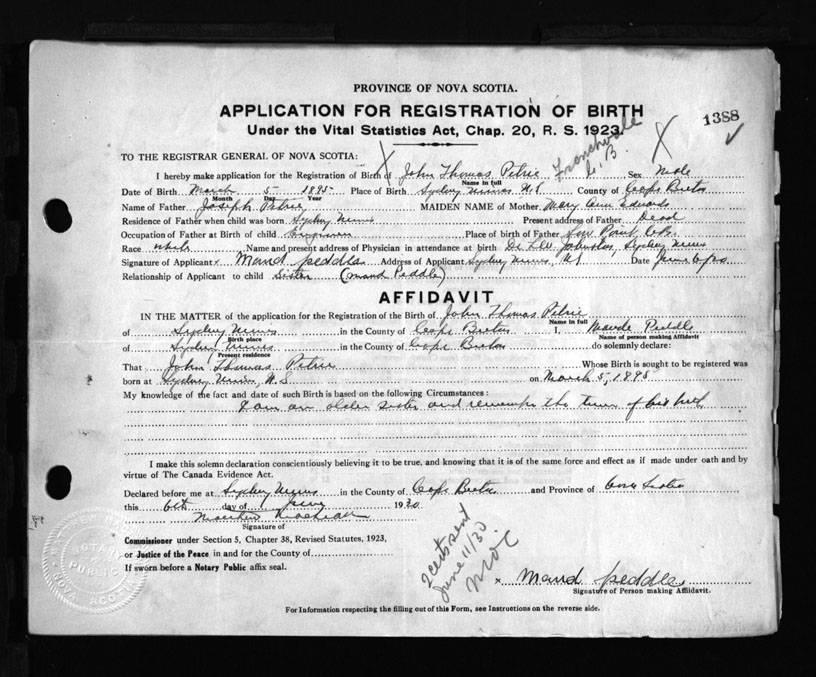 PROVINCE OF NOVA SCOTIA.
APPLICATION FOR REGISTRATION OF BIRTH
Under the Vital Statistics Act, Chap. 20, R. S. 1923.
1388
Frenchvale
C.B.
TO THE REGISTRAR GENERAL OF NOVA SCOTIA:
I hereby make application for the Registration of Birth of John Thomas Petrie Sex Male
Name in full
Date of Birth March 5 1895 Place of Birth Sydney Mines N.S County of Cape Breton
Month Day Year
Name of Father Joseph Petrie MAIDEN NAME of Mother Mary Ann Edwards
Residence of Father when child was born Sydney Mines Present address of Father Dead
Occupation of Father at Birth of child Place of birth of Father Low Point C.B.
Race White Name and present address of Physician in attendance at birth Dr. Johnston, Sydney Mines
Signature of Applicant x Maud Peddle Address of Applicant Sydney Mines, NS Date June 6/30
Relationship of Applicant to child Sister (Maud Peddle)
AFFIDAVIT
IN THE MATTER of the application for the Registration of the Birth of John Thomas Petrie
Name in full
of Sydney Mines in the County of Cape Breton I, Maude Peddle
Birth place Name of person making Affidavit
of Sydney Mines in the County of Cape Breton do solemnly declare:
Present residence
That John Thomas Petrie Whose Birth is sought to be registered was
born at Sydney Mines, N.S on March 5, 1895
My knowledge of the fact and date of such Birth is based on the following Circumstances:
I am an older sister and remember the time of his birth
I make this solemn declaration conscientiously believing it to be true, and knowing that it is of the same force and effect as if made under oath and by
virtue of The Canada Evidence Act.
Declared before me at Sydney Mines in the County of Cape Breton and Province of Nova Scotia
this 6th day of June 1930
Signature of
Commissioner under Section 5, Chapter 38, Revised Statutes, 1923,
or Justice of the Peace in and for the County of
If sworn before a Notary Public affix seal.
2 certs sent
June 11/30
x Maud Peddle
Signature of Person making Affidavit.
For Information respecting the filling out of this Form, see Instructions on the reverse side.
NOTARY
PUBLIC
NOVA SCOTIA